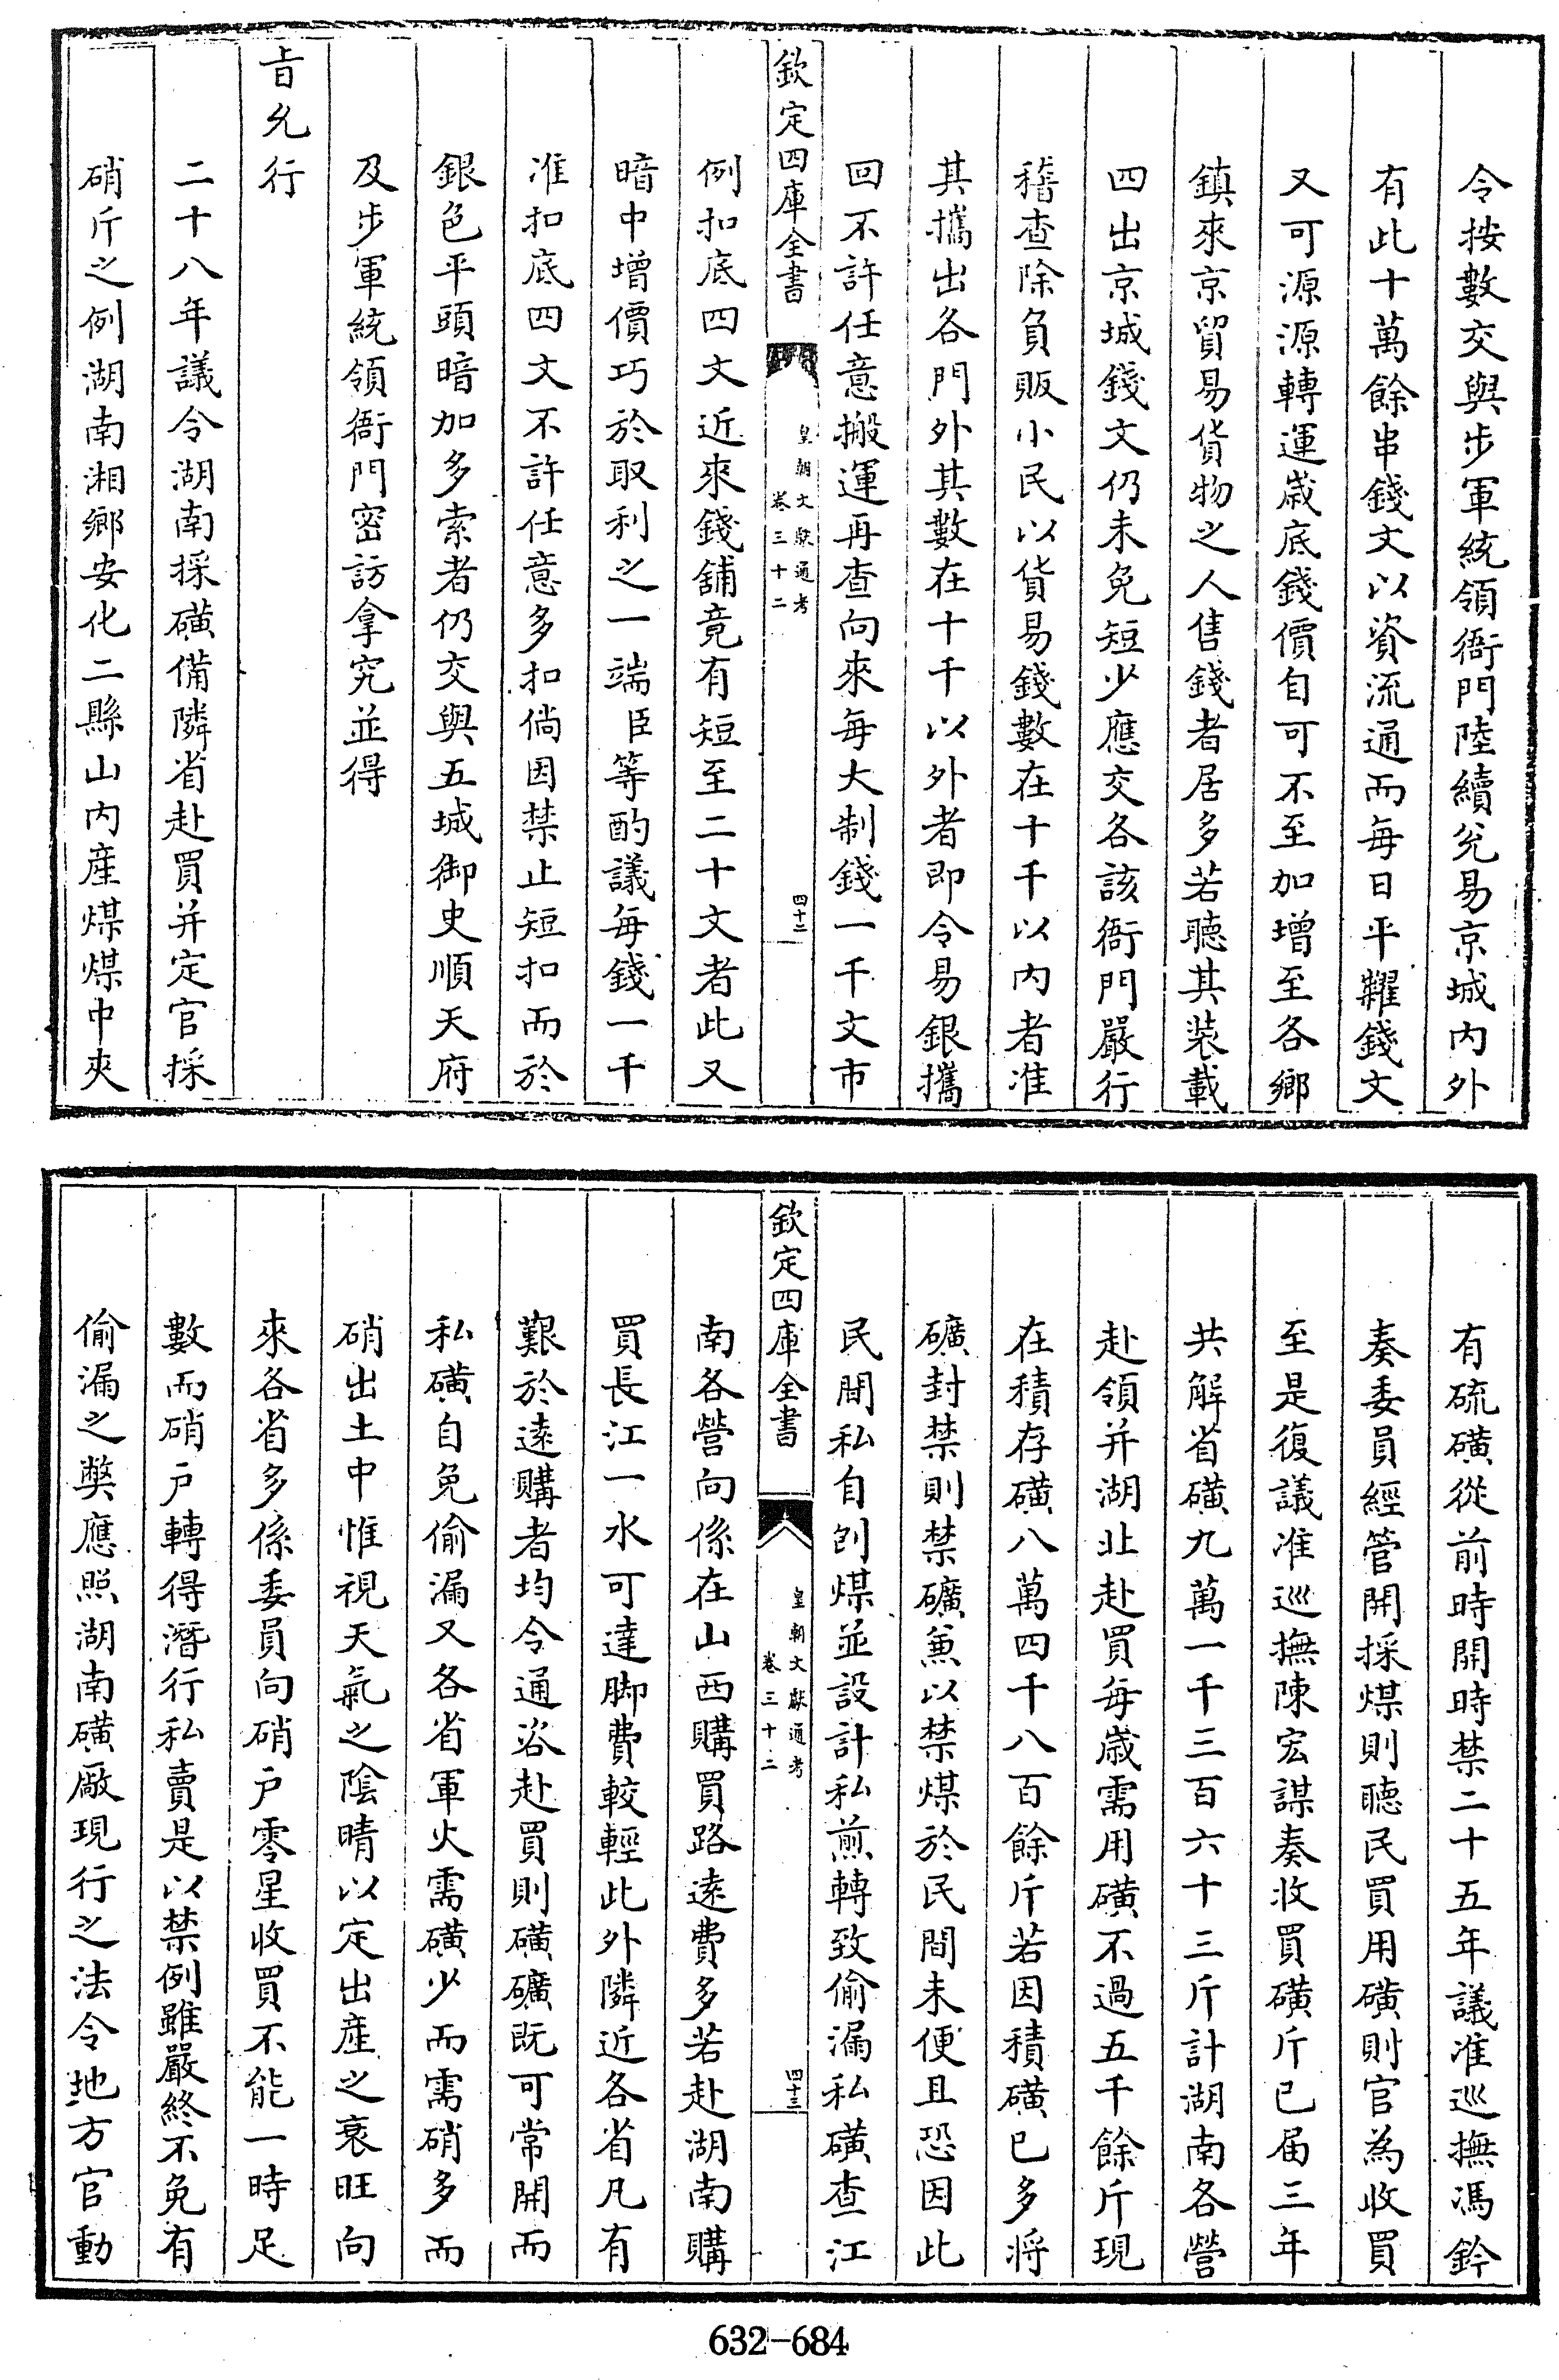 令按數交與步軍統領衙門陸續兊易京城内外
有此十萬餘串錢文以資流通而每日平糶錢文
又可源源轉運歲底錢價自可不至加增至各鄉
鎮來京貿易貨物之人售錢者居多若聽其装載
四出京城錢文仍未免短少應交各該衙門嚴行
稽查除負販小民以貨易錢數在十千以内者准
其攜出各門外其數在十千以外者即令易銀攜
回不許任意搬運再查向來每大制錢一千文市
欽定四庫全書
皇朝文獻通考
卷三十二
四十二
例扣底四文近來錢舖竟有短至二十文者此又
暗中增價巧於取利之一端臣等酌議每錢一千
准扣底四文不許任意多扣倘因禁止短扣而於
銀色平頭暗加多索者仍交與五城御史順天府
及步軍統領衙門密訪拿究並得
㫖允行
二十八年議令湖南採磺備隣省赴買并定官採
硝斤之例湖南湘鄉安化二縣山内産煤煤中夾
有硫磺從前時開時禁二十五年議准巡撫馮鈐
奏委員經管開採煤則聽民買用磺則官為收買
至是復議准巡撫陳宏謀奏收買磺斤已届三年
共解省磺九萬一千三百六十三斤計湖南各營
赴領并湖北赴買每歲需用磺不過五千餘斤現
在積存磺八萬四千八百餘斤若因積磺已多將
礦封禁則禁礦兼以禁煤於民間未便且恐因此
民間私自刨煤並設計私煎轉致偷漏私磺查江
欽定四庫全書
皇朝文獻通考
卷三十二
四十三
南各營向係在山西購買路遠費多若赴湖南購
買長江一水可達脚費較輕此外隣近各省凡有
艱於遠購者均令通咨赴買則磺礦既可常開而
私磺自免偷漏又各省軍火需磺少而需硝多而
硝出土中惟視天氣之陰晴以定出産之衰旺向
來各省多係委員向硝户零星收買不能一時足
數而硝户轉得潛行私賣是以禁例雖嚴終不免有
偷漏之獘應照湖南磺廠現行之法令地方官動
632-684